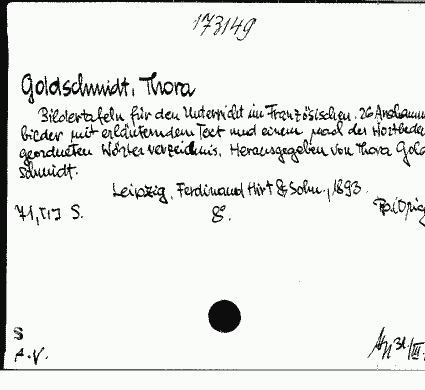 173149
Goldschmidt, Thora
Bildertafeln für den Unterricht im Französischen. 26 Anschauun
bilder mit erläuterndem Text und einem nach der Wortbede
geordneten Wörterverzeichnis. Herausgegeben von Thora Gold
schmidt.
Leipzig, Ferdinand Hirt & Sohn, 1893.
71, [1] S. 8°.
S
A.V.